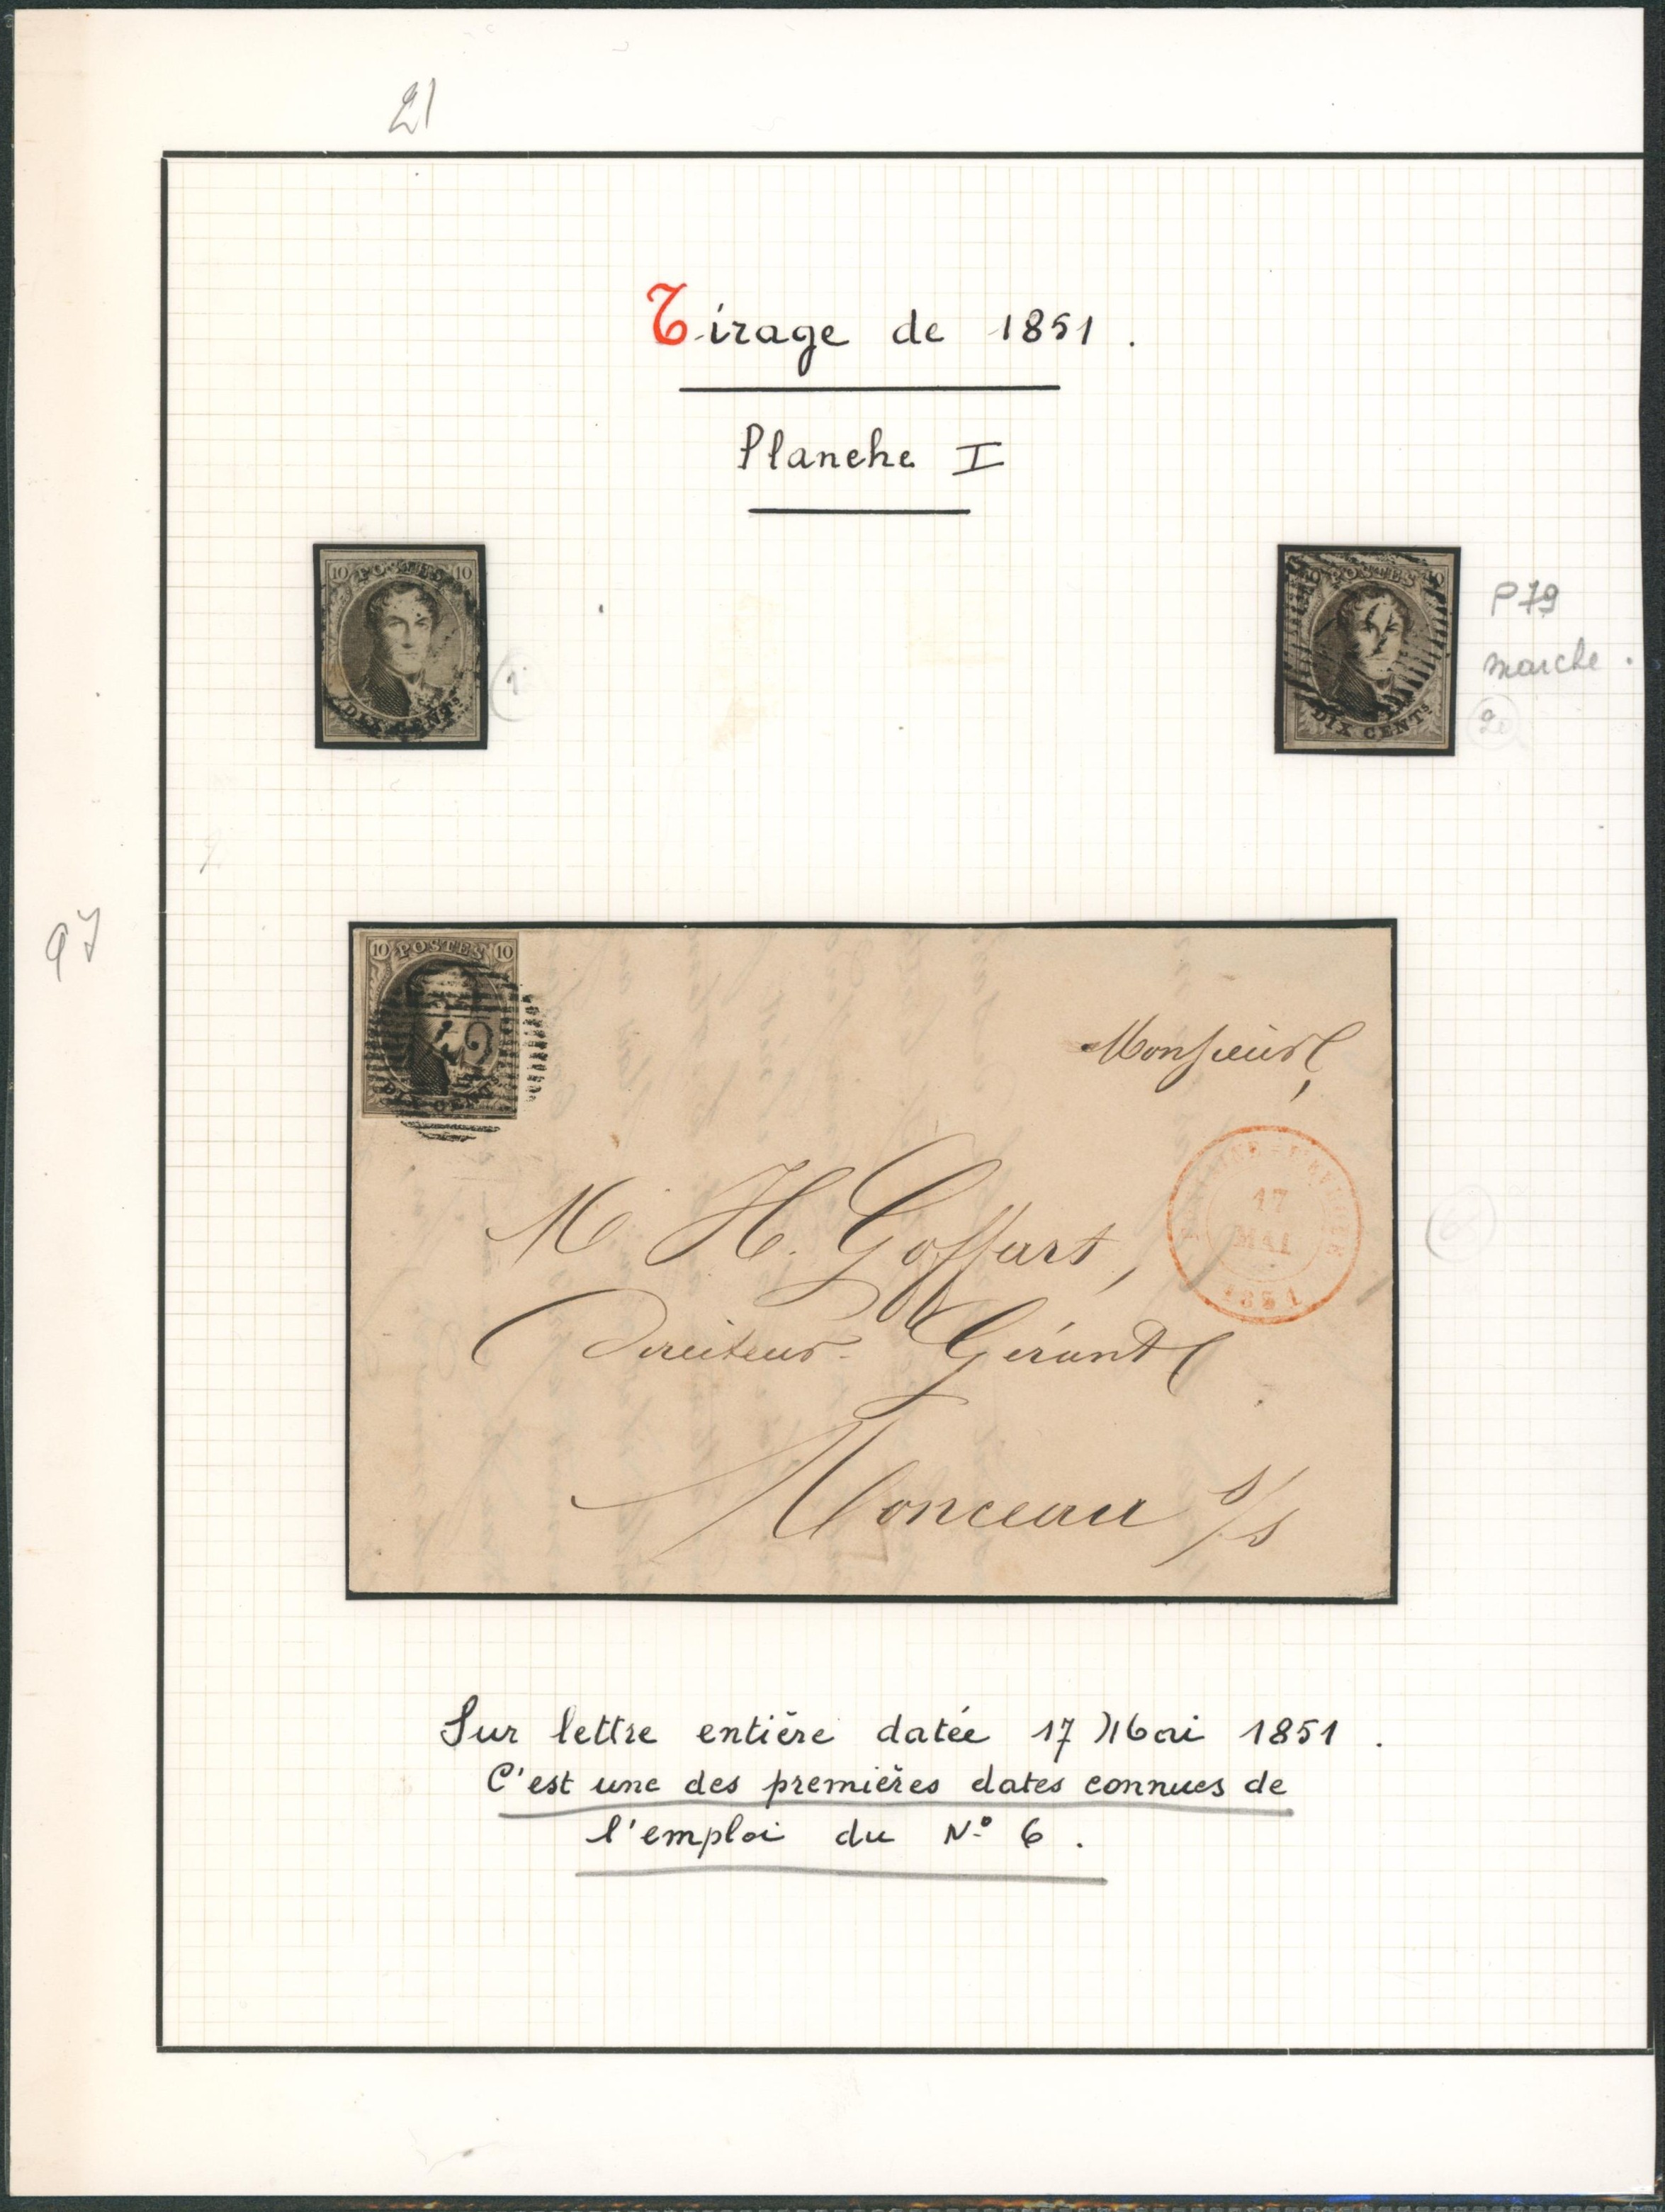 21
Tirage de 1851.
Planche I
10 POSTES 10
DIX CENTS
1
10 POSTES 10
DIX CENTS
P79
marche.
2
97
10 POSTES 10
DIX CENTS
Monsieur,
M H. Goffart,
17
MAI
1851
Directeur-Gérant
Monceau s/s
Sur lettre entière datée 17 Mai 1851.
C'est une des premières dates connues de
l'emploi du N.° 6.